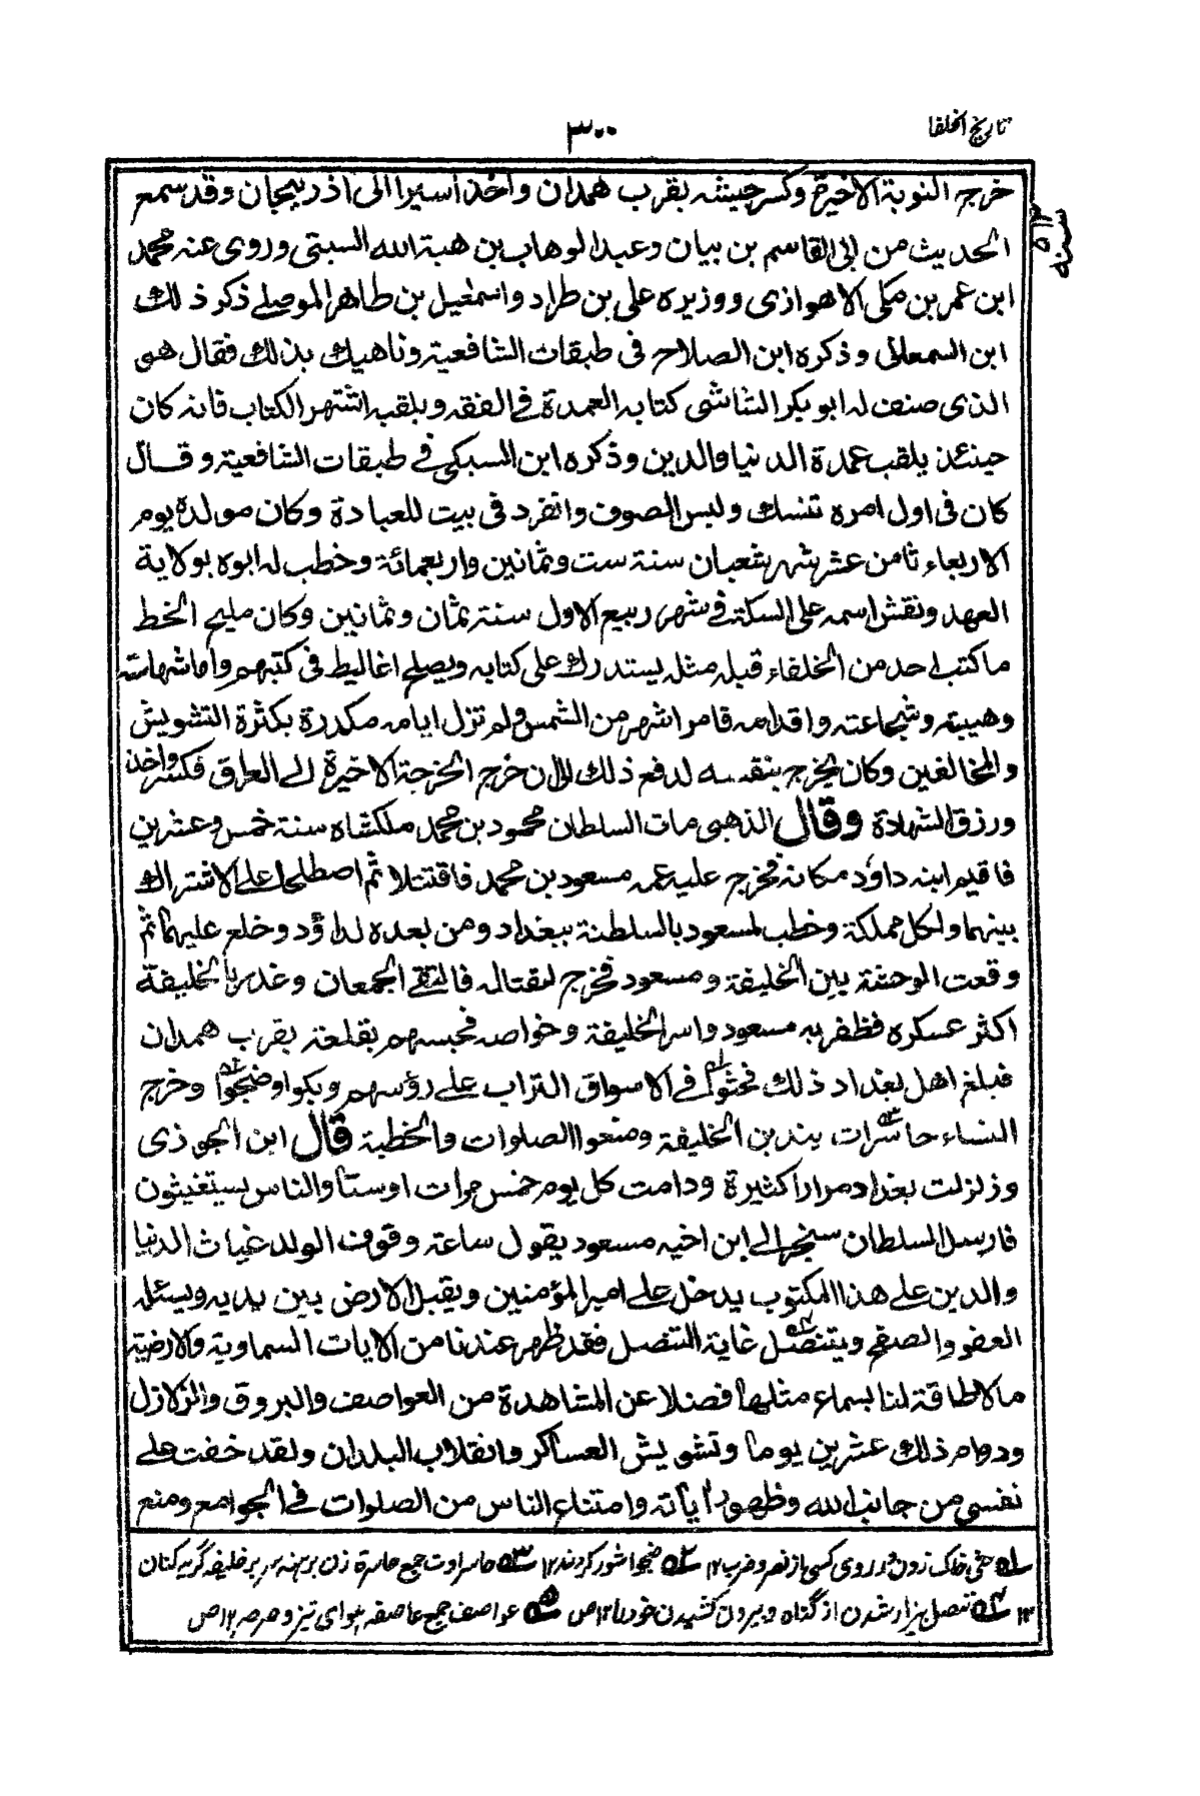 تاريخ الخلفا
٣٠٠
سنه ٥١٢
خرج النوبة الاخيرة وكسر جيشه بقرب همدان واخذ اسيرا الى اذربيجان وقد سمع
الحديث من ابى القاسم بن بيان وعبد الوهاب بن هبة الله السبتى وروى عنه محمد
ابن عمر بن مكى الاهوازى ووزيره على بن طراد واسمٰعيل بن طاهر الموصلے ذكر ذلك
ابن السمعانى وذكره ابن الصلاح فى طبقات الشافعية وناهيك بذلك فقال هو
الذى صنف له ابو بكر الشاشى كتابه العمدة فے الفقه وبلقبه اشتهر الكتاب فانه كان
حينئذ يلقب عمدة الدنيا والدين وذكره ابن السبكى فے طبقات الشافعية وقال
كان فى اول امره تنسك ولبس الصوف وانفرد فى بيت للعبادة وكان مولده يوم
الاربعاء ثامن عشر شهر شعبان سنة ست وثمانين واربعمائة وخطب له ابوه بولاية
العهد ونقش اسمه على السكة فے شهر ربيع الاول سنة ثمان وثمانين وكان مليح الخط
ما كتب احد من الخلفاء قبله مثله يستدرك على كتابه ويصلح اغاليط فى كتبهم واما شهامته
وهيبته وشجاعته واقدامه فامر اشهر من الشمس ولم تزل ايامه مكدرة بكثرة التشويش
والمخالفين وكان يخرج بنفسه لدفع ذلك الى ان خرج الخرجة الاخيرة الے العراق فكسر واخذ
ورزق الشهادة وقال الذهبى مات السلطان محمود بن محمد ملكشاه سنة خمس وعشرين
فاقيم ابنه داؤد مكانه فخرج عليه عمه مسعود بن محمد فاقتتلا ثم اصطلحا على الاشتراك
بينهما ولكل مملكة وخطب لمسعود بالسلطنة ببغداد ومن بعده لداؤد وخلع عليهما ثم
وقعت الوحشة بين الخليفة ومسعود فخرج لقتاله فالتقے الجمعان وغدر بالخليفة
اكثر عسكره فظفر به مسعود واسر الخليفة وخواصه فحبسهم بقلعة بقرب همدان
فبلغ اهل بغداد ذلك فحثوا فے الاسواق التراب علے رؤسهم وبكوا وضجوا وخرج
النساء حاسرات يندبن الخليفة ومنعوا الصلوات والخطبة قال ابن الجوزى
وزلزلت بغداد مرارا كثيرة ودامت كل يوم خمس مرات او ستا والناس يستغيثون
فارسل السلطان سنجر الے ابن اخيه مسعود يقول ساعة وقوف الولد غياث الدنيا
والدين علے هذا المكتوب يدخل علے امير المؤمنين ويقبل الارض بين يديه ويسئله
العفو والصفح ويتنصل غاية التنصل فقد ظهر عندنا من الايات السماوية والارضية
ما لا طاقة لنا بسماع مثلها فضلا عن المشاهدة من العواصف والبروق والزلازل
ودوام ذلك عشرين يوما وتشويش العساكر وانقلاب البلدان ولقد خفت علے
نفسى من جانب الله وظهور اياته وامتناع الناس من الصلوات فے الجوامع ومنع
١ه حثى خاک زدن در روى كسى از نصر وضرب ١٢ ٢ه ضجوا شور كردند ١٢ ٣ه حاسرات جمع حاسرة زن برہنہ سر بر خليفہ گريہ كنان
١٢ ٤ه تنصل بيزار شدن از گناه وبيرون كشيدن خود را ١٢ ص ٥ه عواصف جمع عاصفه ہواى تيز وصرصر ١٢ ص